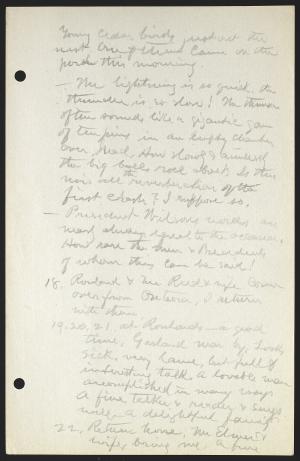 Young cedar birds just out the
nest. One of them came on the
porch this morning.
— The lightning is so quick, the
thunder is so slow! The thunder
often sounds like a gigantic game
of tenpins in an empty chamber
over head. How slowly
the big balls roll about. Is this
noise all the reverberation of the
first crash? I suppose so.
— President Wilsons words are
nearly always equal to the occasion.
How rare the men & Presidents
of whom this can be said!
18. Rowland & Mr Reed & wife come
over from Onteora, I return
with them.
19, 20, 21, at Rowlands — a good
time, Garland near by. Looks
sick, very lame, but full of
interesting talk, a lovable man
accomplished in many ways
A fine talker & reader & sings
well. A delightful family
22, Return home, Mr &
wife bring me. A fine